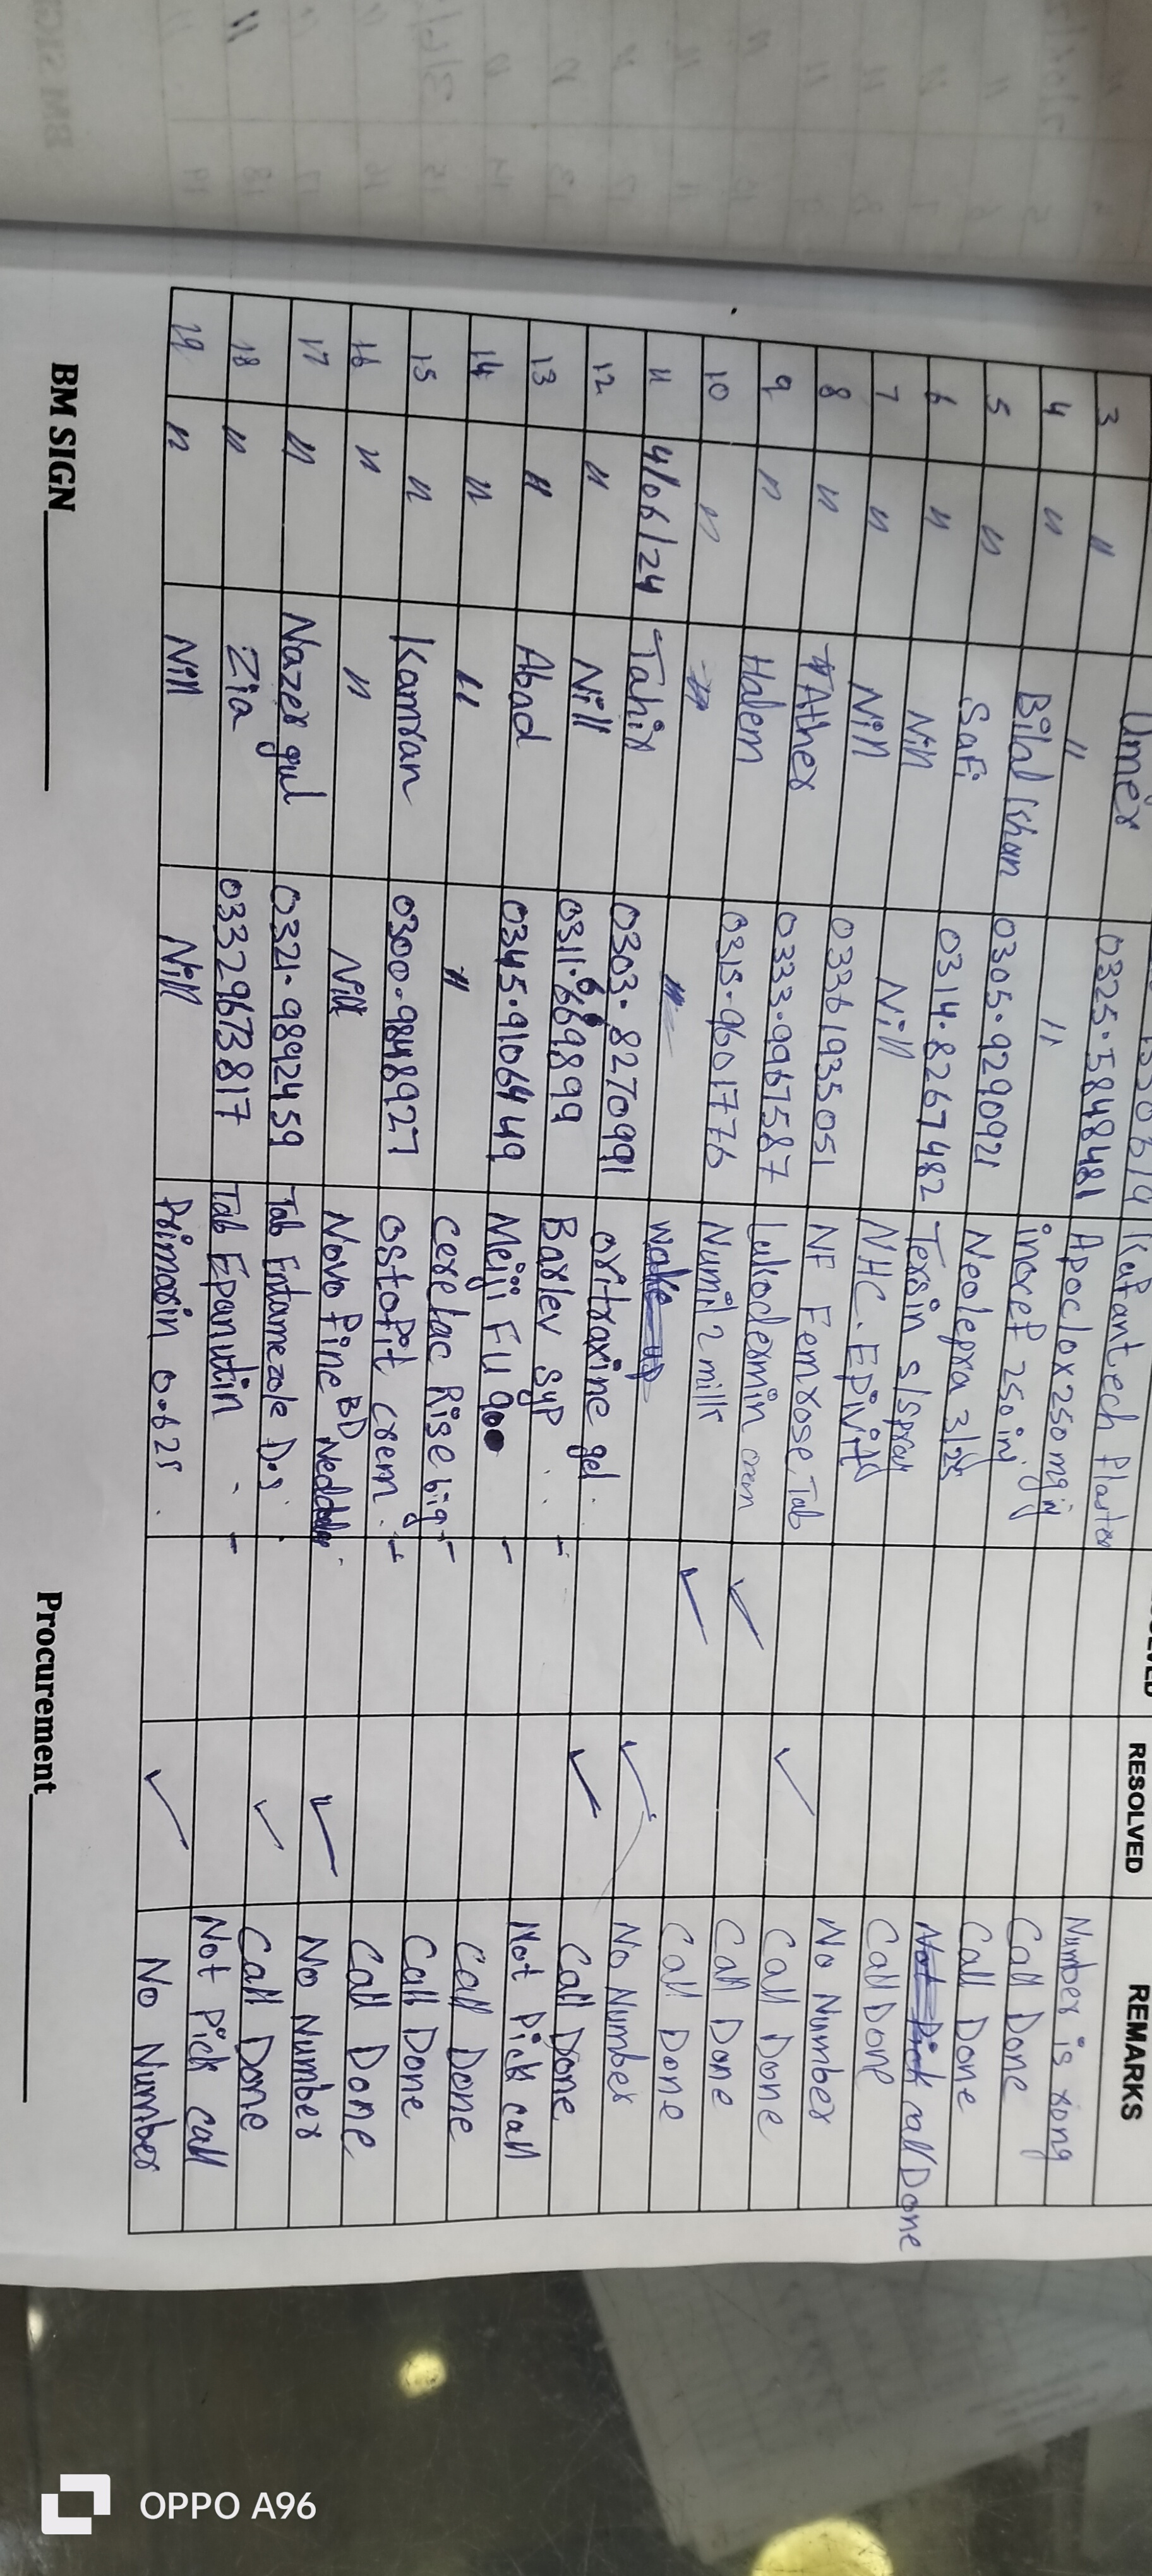 RESOLVED REMARKS
Kafantech Plaster Number is rong
Umer 0325.5848481 Apoclox 250mg inj Call Done
3 " " " inoxef 250 inj Call Done
4 " Bilal Khan 0305.9290921 Neolepra Not Pick call Done
5 " Safi 0314.8267482 Texsin s/spray Call Done
6 " Nill Nill NHC. Epivit No Number
7 " Nill 03361935051 NF Femrose Tab ✓ Call Done
8 " Ather 0333.9967587 Lukodermin ✓ Call Done
9 " Halem 0315.9601776 Numil 2 milk ✓ Call Done
10 " " " wake up ✓ No Number
11 4/06/24 Tahir 0303.8270991 oxitraxine gel ✓ Call Done
12 " Nill 0311.6669899 Barlev syp Not Pick call
13 " Abad 0345.9106449 Meiji FU 900 Call Done
14 " " " Cerelac Rise big Call Done
15 " Kamran 0300.9848927 Ostofit crem Call Done
16 " " Nill Novo Fine BD Neddle ✓ No Number
17 " Nazer gul 0321.9892459 Tab Entamezole D.S ✓ Call Done
18 " Zia 03329673817 Tab Epanutin Not Pick call
19 " Nill Nill Primaxin 0.625 ✓ No Number
BM SIGN Procurement
OPPO A96